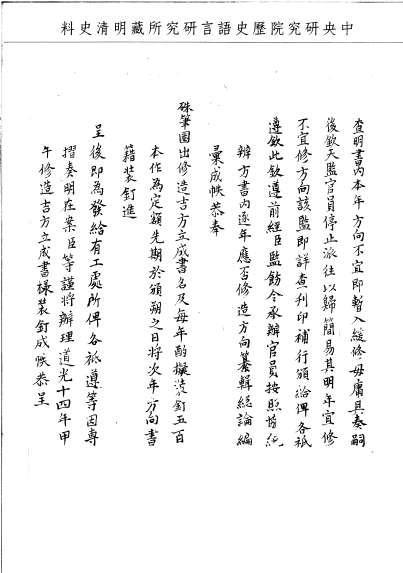 中央研究院歷史語言研究所藏明清史料
查明書內本年方向不宜即暫入緩修毋庸具奏嗣
後欽天監官員停止派往以歸簡易其明年宜修
不宜修方向該監即詳查刊印補行頒給俾各祇
遵欽此欽遵前經臣監飭令承辦官員按照協紀
辨方書內逐年應否修造方向纂輯總論編
彙成帙恭奉
硃筆圈出修造吉方立成書名及每年酌擬裝釘五百
本作為定額先期於頒朔之日將次年方向書
籍裝釘進
呈後即為發給有工處所俾各祇遵等因專
摺奏明在案臣等謹將辦理道光十四年甲
午修造吉方立成書樣裝釘成帙恭呈